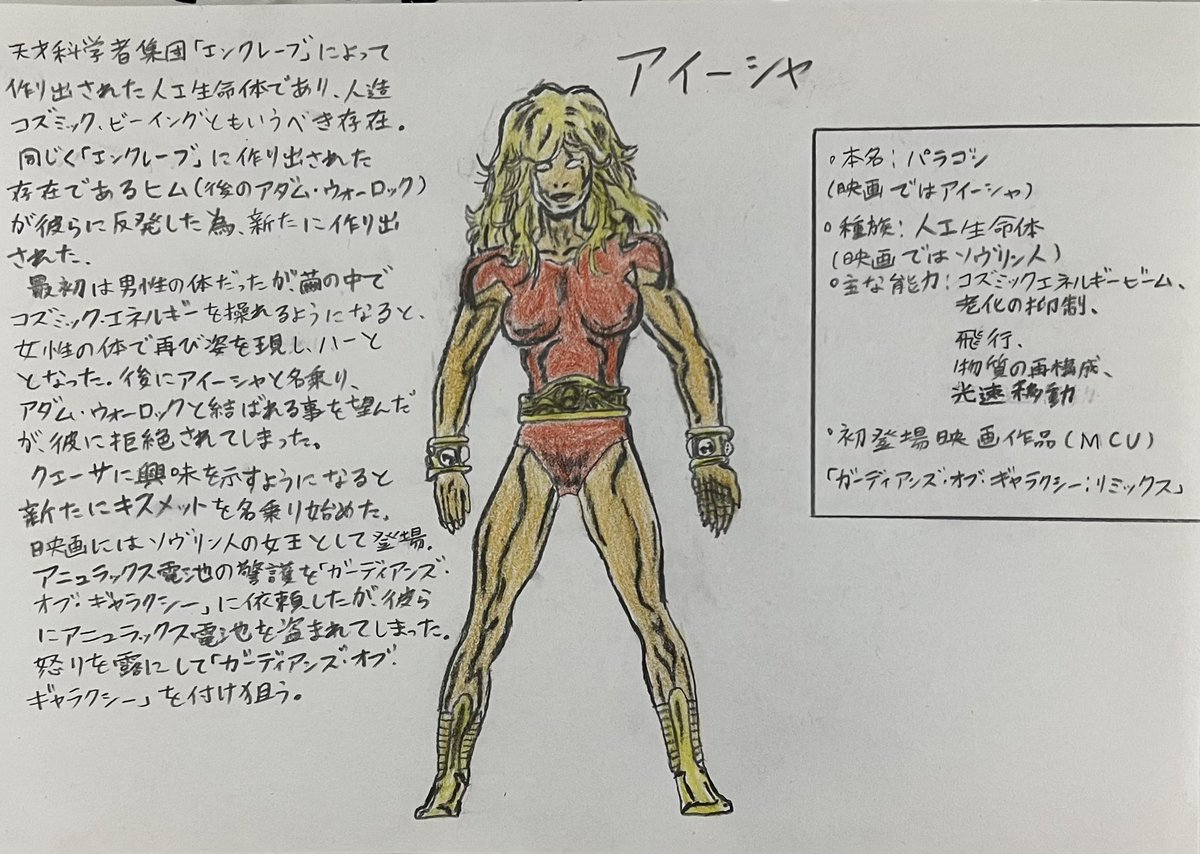 アイーシャ
天才科学者集団「エンクレーブ」によって
作り出された人工生命体であり、人造
コズミック、ビーイングともいうべき存在。
同じく「エンクレーブ」に作り出された
存在であるヒム(後のアダム・ウォーロック)
が彼らに反発した為、新たに作り出
された。
最初は男性の体だったが繭の中で
コズミック・エネルギーを操れるようになると、
女性の体で再び姿を現し、ハーと
となった。後にアイーシャと名乗り、
アダム・ウォーロックと結ばれる事を望んだ
が、彼に拒絶されてしまった。
クエーサに興味を示すようになると
新たにキスメットを名乗り始めた。
映画にはソヴリン人の女王として登場。
アニュラックス電池の警護を「ガーディアンズ・
オブ・ギャラクシー」に依頼したが、彼ら
にアニュラックス電池を盗まれてしまった。
怒りを露にして「ガーディアンズ・オブ・
ギャラクシー」を付け狙う。
・本名:パラゴン
(映画ではアイーシャ)
・種族:人工生命体
(映画ではソヴリン人)
・主な能力:コズミックエネルギービーム、
老化の抑制、
飛行、
物質の再構成、
光速移動
・初登場映画作品(MCU)
「ガーディアンズ・オブ・ギャラクシー:リミックス」